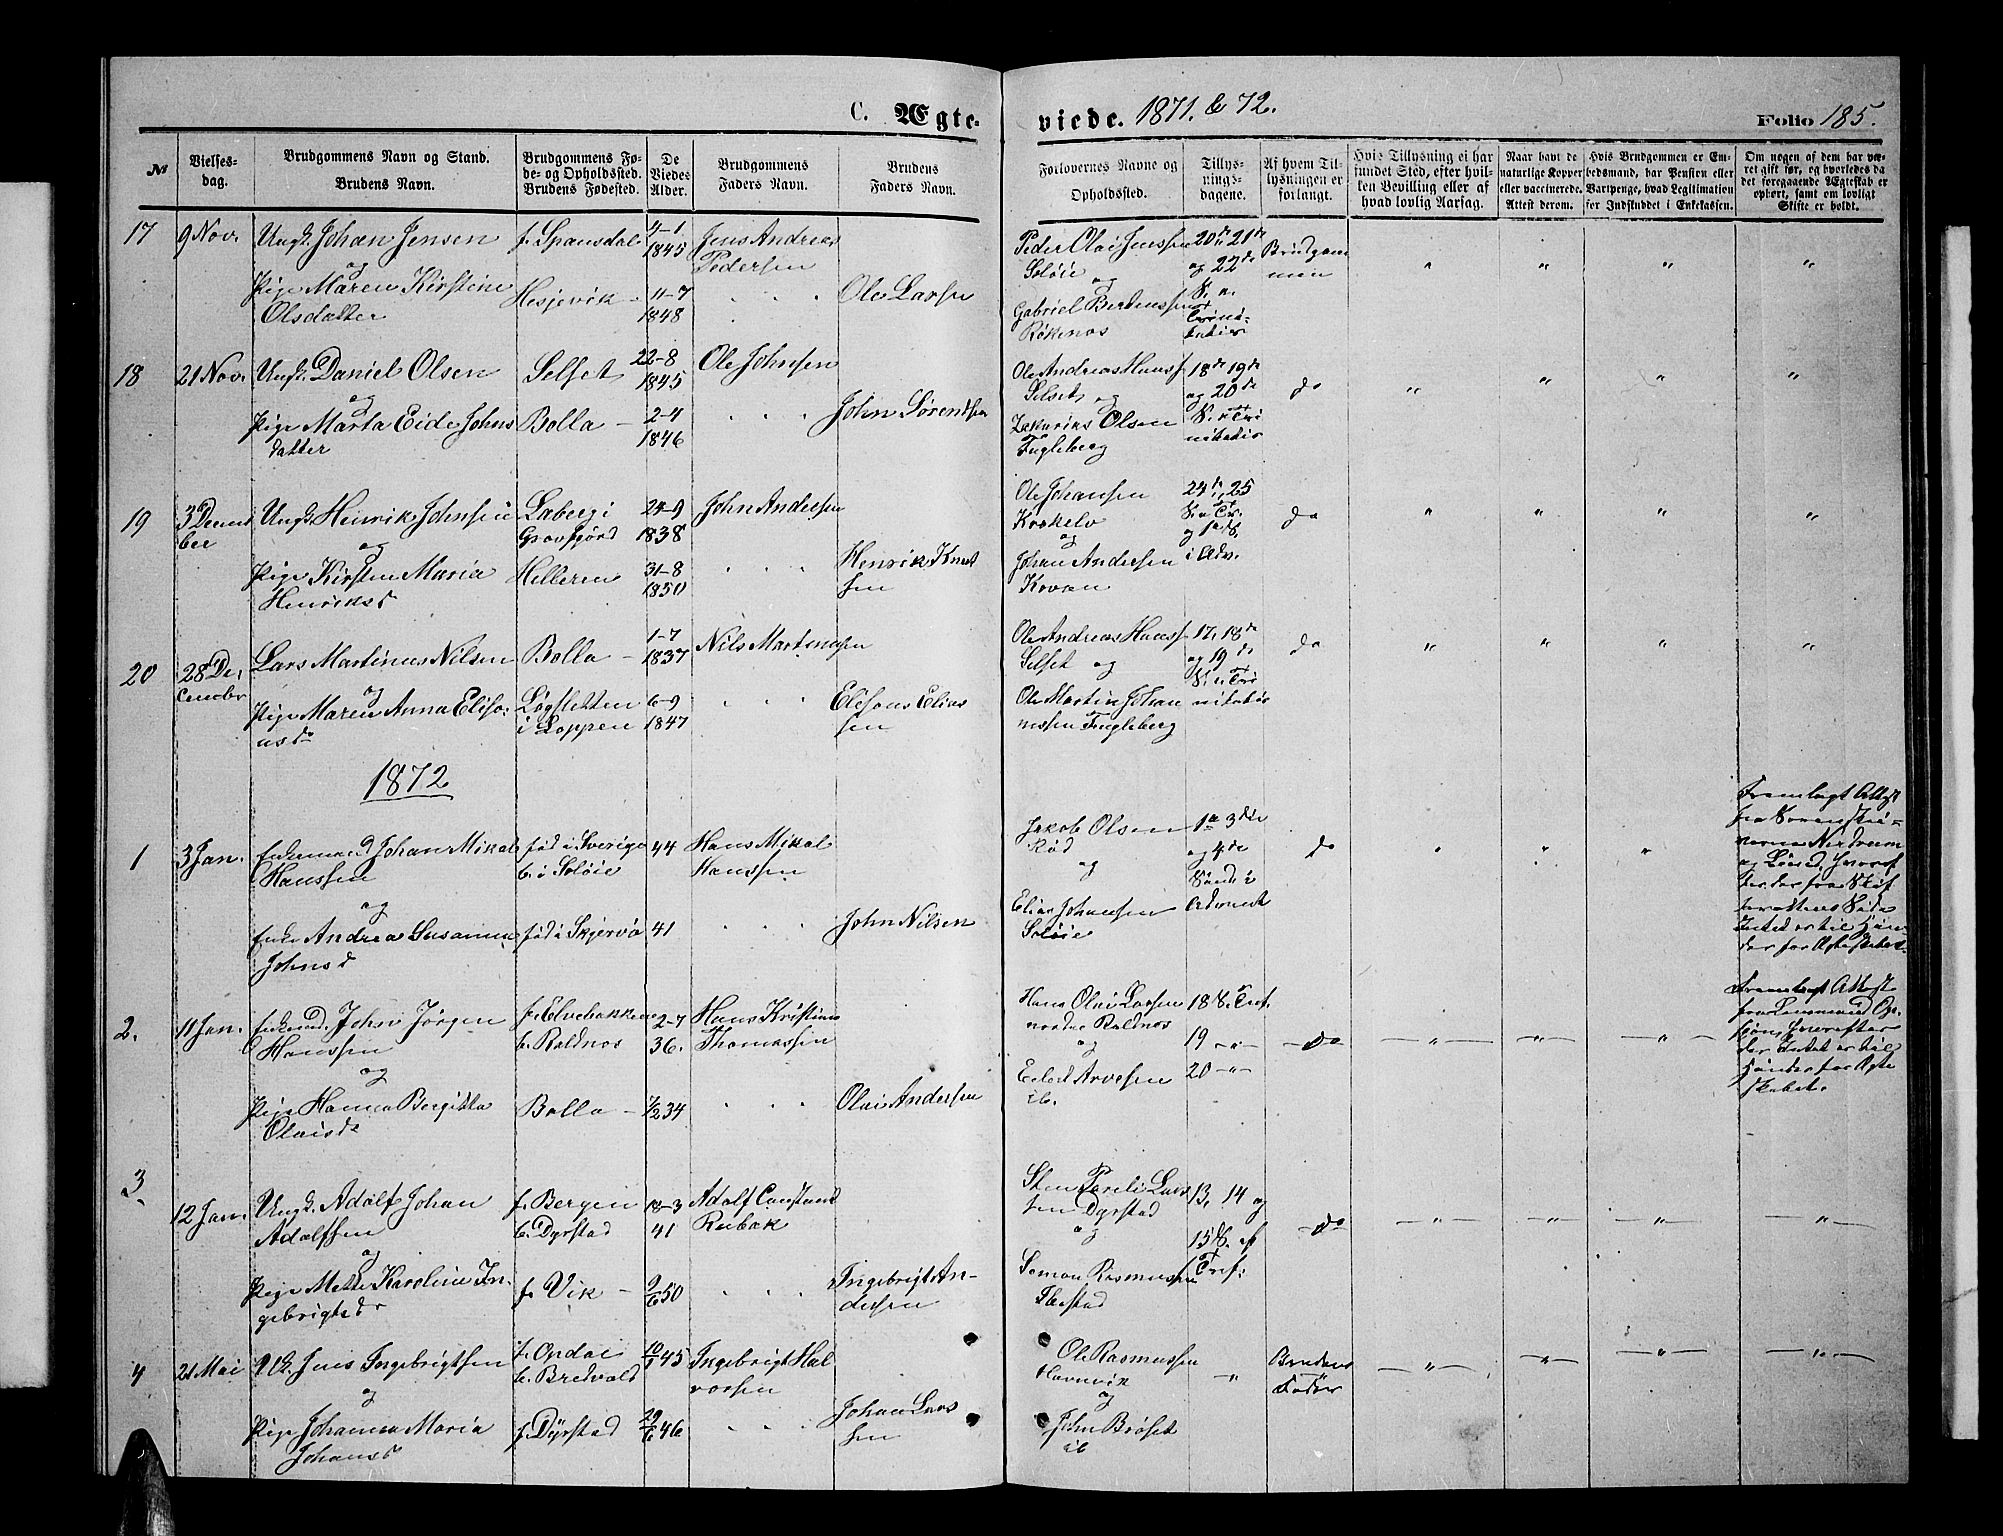 C. Ægte-
viede. 1871. & 72.
Folio 185.
№
Vielses-
dag.
Brudgommens Navn og Stand.
Brudens Navn.
Brudgommens Fø-
de- og Opholdssted.
Brudens Fødested.
De
Viedes
Alder.
Brudgommens
Faders Navn.
Brudens
Faders Navn.
Forlovernes Navne og
Opholdssted.
Tillys-
nings-
dagene.
Af hvem Til-
lysningen er
forlangt.
Hvis Tillysning ei har
fundet Sted, efter hvil-
ken Bevilling eller af
hvad lovlig Aarsag.
Naar havt de
naturlige Kopper
eller vaccinerede.
Attest derom.
Hvis Brudgommen er Em-
bedsmand, har Pension eller
Vartpenge, hvad Legitimation
for Indskuddet i Enkekassen.
Om nogen af dem har væ-
ret gift før, og hvorledes da
det foregaaende Ægteskab er
ophørt, samt om lovligt
Skifte er holdt.
17
9 Nov.
Ungk. Johan Jensen
og
Pige Maren Kirstine
Olsdatter
f. Spansdal
Hesjevik
4-1
1845
11-7
1848
Jens Andreas
Pedersen
Ole Larsen
Peder Olai Jenssen
Soløie
og
Gabriel Berteussen
Røkenæs
20de 21de
og 22de
S. n.
Trini-
tatis
Brudgom
men
18
21 Nov.
Ungk. Daniel Olsen
og
Pige Marta Eide Johns
datter
Selset
Bolla
22-8
1845
2-4
1846
Ole Johnsen
John Sørensen
Ole Andreas Hanss.
Selset og
Zakarias Olsen
Fugleberg
18de 19de
og 20de
S. n. Tri
nitatis
do
19
3 Decem
ber
Ungk. Henrik Johnsen
og
Pige Kirsten Maria
Henriksd
Laberg i
Gravfjord
Helleren
24-9
1838
31-8
1850
John Andersen
Henrik Knut
sen
Ole Johansen
Krokelv
og
Johan Andersen
Kovan
24de, 25
S. n. Tr.
og 1ste S.
i Adv.
do
20
28 De,
cember
Lars Martinus Nilsen
og
Pige Maren Anna Elisæ-
usdr
Bolla
Løgsletten
i Loppen
1-7
1837
6-9
1847
Nils Martinussen
Elisæus Elias
sen
Ole Andreas Hanss.
Selset og
Ole Martin Johan
nessen Fugleberg
17, 18de
og 19de
S. n. Tri
nitatis
do
1872
1
3 Jan.
Enkemand Johan Mikal
Hanssen
og
Enke Andrea Susanna
Johnsd
fød i Sverige
b. i Soløie
fød i Skjervø
44
41
Hans Mikal
Hanssen
John Nilsen
Jakob Olsen
Rød
og
Elias Johansen
Soløie
1ste 3die
og 4de
Sønd. i
Advent
do
Fremlagt Attest
fra Sorenskri-
verne
hvoref
ter der fra Skif
terettens Side
Intet er til Hin-
der for Ægteskabet.
2.
11 Jan.
Enkemd. John Jørgen
Hanssen
og
Pige Hanna Bergitta
Olaisdr
f. Elvebakken
b. Roldnæs
Bolla
2-7
36.
7/2 34
Hans Kristian
Thomassen
Olai Andersen
Hans Olai Larsen
nordre Roldnæs
og
Edert Arvesen
ib.
18 S. e Tref.
19
20
do
Fremlagt Attest
fra Lensmand
hvorefter
der Intet er til
Hinder for Ægte
skabet.
3
12 Jan.
Ungk. Adolf Johan
Adolfsen
og
Pige Mette Karoline In-
gebrigtsdr
f. Bergen
b. Dyrstad
f. Vik
18-3
41
9/6 50
Adolf Constant
Rubak
Ingebrigt An-
dersen
Sten Pareli Lars
sen Dyrstad
og
Somon Rasmussen
Ibestad
13, 14 og
15 S. ef
Tref:
do
4
21 Mai
Uk. Jens Ingebrigtsen
og
Pige Johanna Maria
Johansd
f. Opdal
b. Bredvald
f. Dyrstad
10/1 45
29/6 46
Ingebrigt Hal
vorsen
Johan Lars
sen
Ole Rasmussen
Havnvik
og
John Brøset
ib
Brudens
Fader